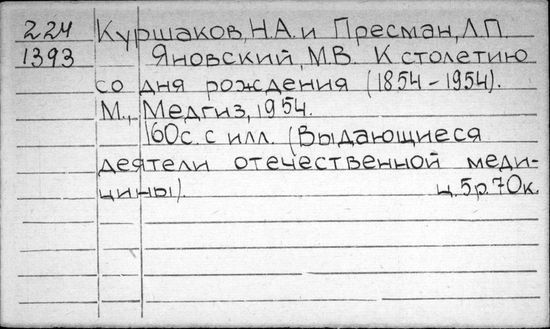 224 Куршаков, Н.А. и Пресман, Л.П.
1393 Яновский, М.В. К столетию
со дня рождения (1854-1954).
М., Медгиз, 1954.
160с. с илл. (Выдающиеся
деятели отечественной меди-
цины). ц. 5р.70к.